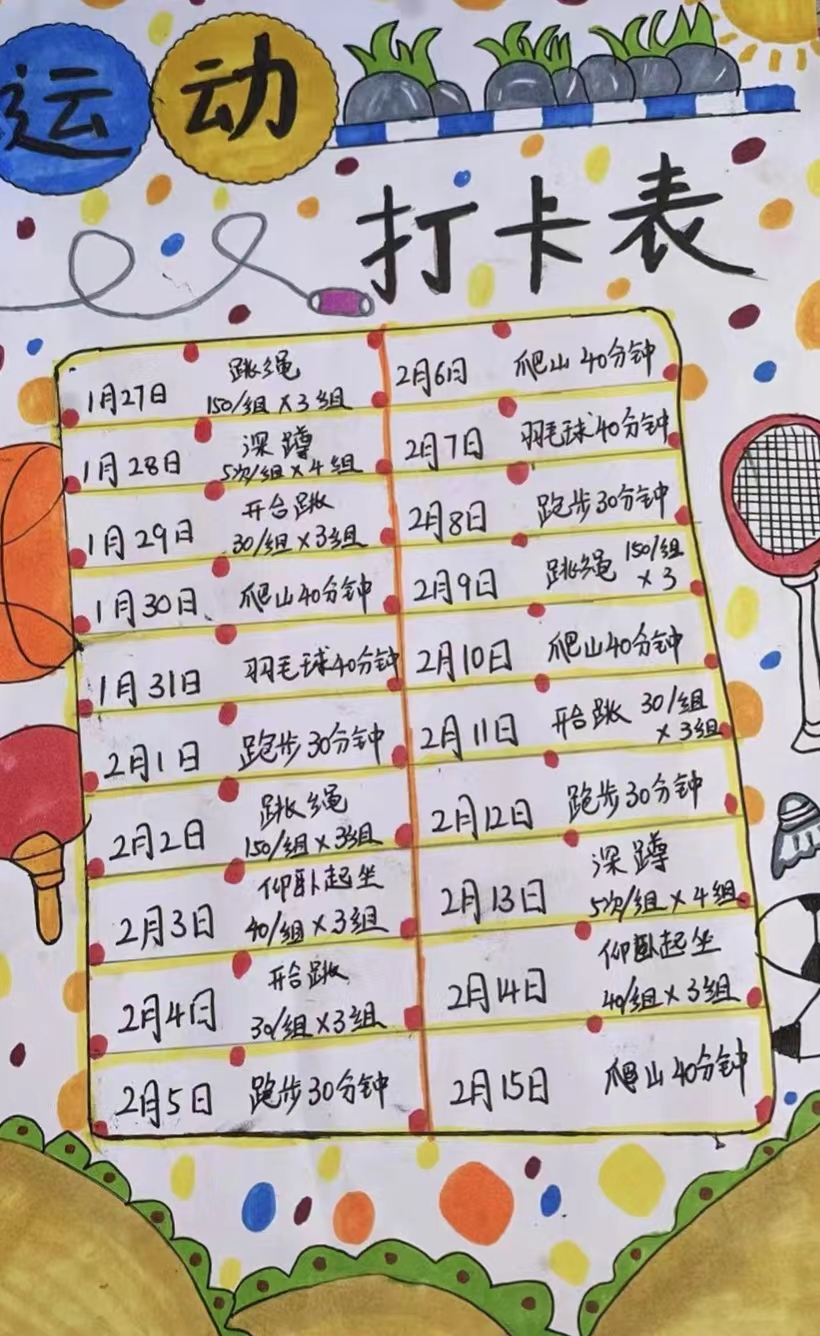 运动
打卡表
1月27日 跳绳
150/组×3组
1月28日 深蹲
5次/组×4组
1月29日 开合跳
30/组×3组
1月30日 爬山40分钟
1月31日 羽毛球40分钟
2月1日 跑步30分钟
2月2日 跳绳
150/组×3组
2月3日 仰卧起坐
40/组×3组
2月4日 开合跳
30/组×3组
2月5日 跑步30分钟
2月6日 爬山40分钟
2月7日 羽毛球40分钟
2月8日 跑步30分钟
2月9日 跳绳 150/组
×3
2月10日 爬山40分钟
2月11日 开合跳 30/组
×3组
2月12日 跑步30分钟
2月13日 深蹲
5次/组×4组
2月14日 仰卧起坐
40/组×3组
2月15日 爬山40分钟